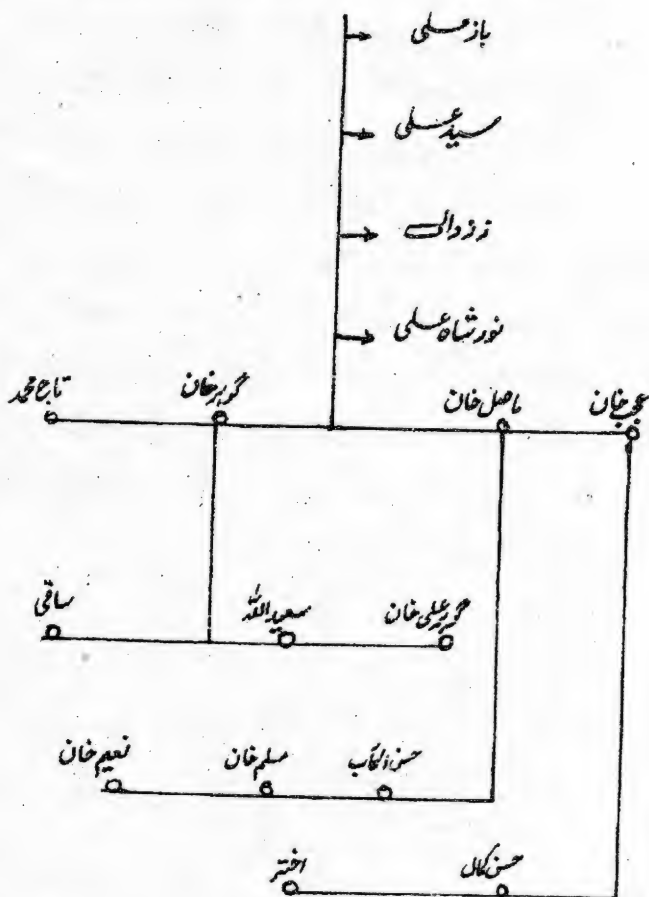 باز علی
سید علی
نور شاہ علی
عجب خان ماصل خان گوہر خان تاج محمد
گوہر علی خان سعید اللہ ساقی
حسن المآب مسلم خان نعیم خان
حسن کمال اختر